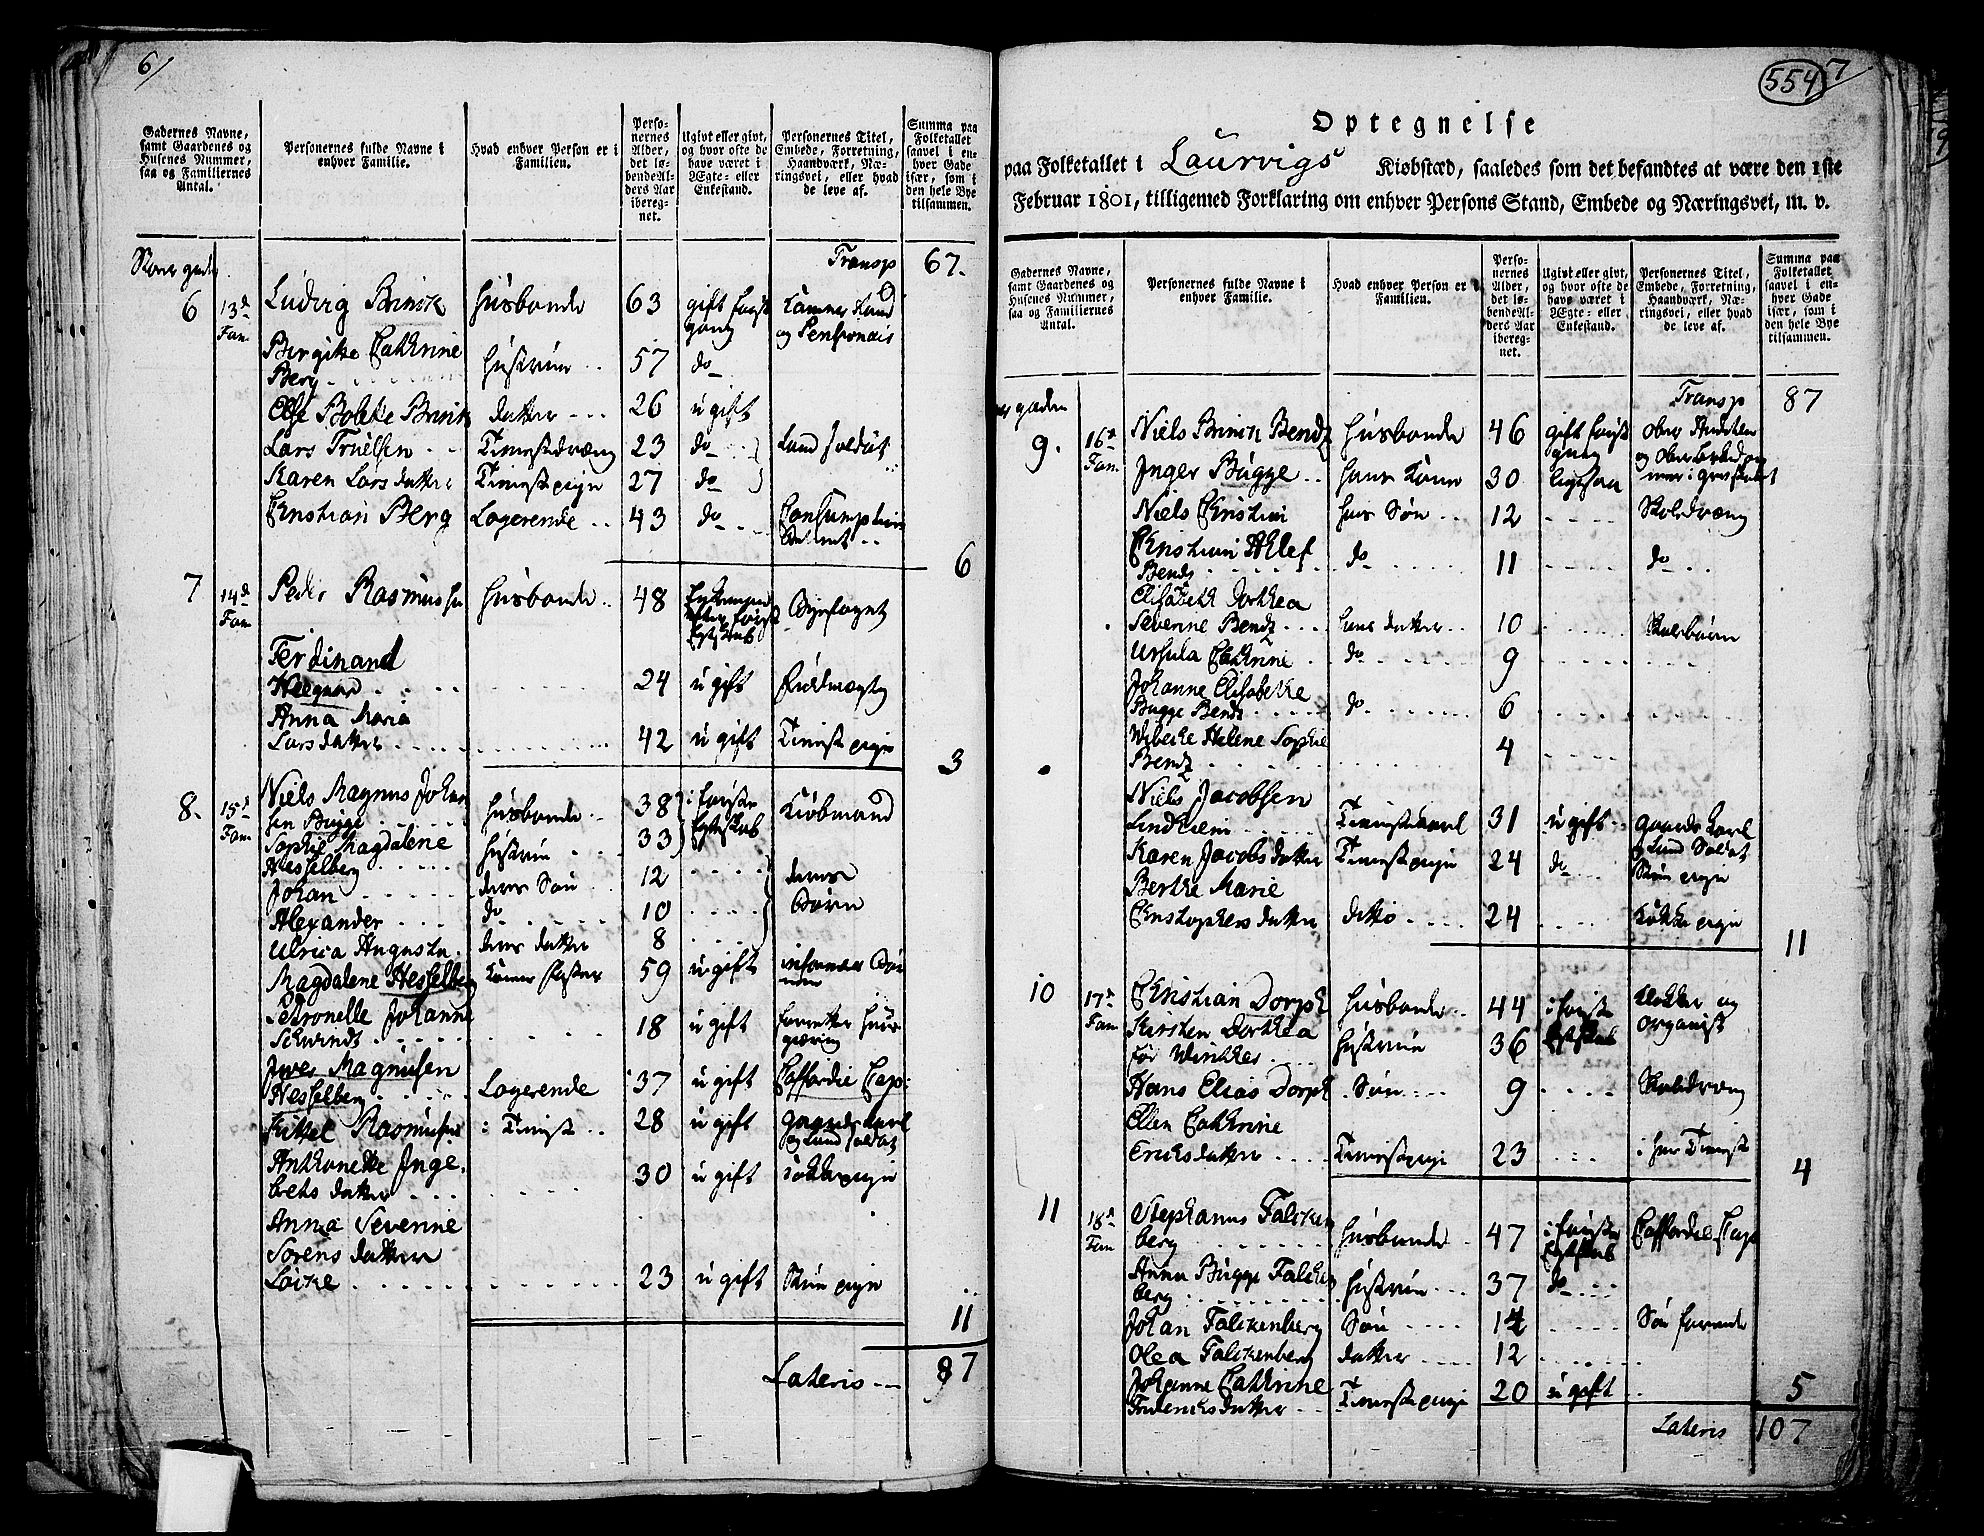 6/
Gadernes Navne,
samt Gaardenes og
Husenes Nummer,
saa og Familiernes
Antal.
Personernes fulde Navne i
enhver Familie.
Hvad enhver Person er i
Familien.
Perso-
nernes
Alder,
det lø-
bende Al-
ders Aar
iberegnet.
Ugivt eller givt,
og hvor ofte de
have været i
Ægte- eller
Enkestand.
Personernes Titel,
Embede, Forretning,
Haandværk, Næ-
ringsvei, eller hvad
de leve af.
Summa paa
Folketallet
saavel i en-
hver Gade
især, som i
den hele Bye
tilsammen.
Transp 67.
6 13de Fam. Ludvig Brinck Husbonde 63 gift første gang og Pensionais
Birgitte Cathrine
Berg Hustrue 57 do
Else Bolette Brinck datter 26 ugift
Lars Truelsen Tienestedræng 23 do Land Soldat
Karen Larsdatter Tienestepige 27 do
Christian Berg Logerende 43 do Consumptions
6
7 14de Fam Peder Rasmussen Husbonde 48 Byefoget
Ferdinand
24 ugift Fuldmægtig
Anna Maria
Larsdatter 42 ugift Tieneste pige
3
8. 15de Fam Niels Magnus Johan
sen Bugge Husbonde 38 i første Kiøbmand
Sophie Magdalene
Hesselberg Hustrue 33 Egteskab
Johan deres Søn 12 deres
Alexander do 10 Børn
Ulrica Augusta deres datter 8
Magdalene Hesselberg 59 ugift
Petronelle Johanne
18 ugift
Iver Magnusen
Hesselberg Logerende 37 ugift Coffardie Cap:
Kittel Rasmusen i Tieneste 28 ugift gaardskarl
og Land Soldat
Anthonette Inge-
bretsdatter 30 ugift Kokkepige
Anna Severine
Sørensdatter
23 ugift Stue pige
11
Lateris 87
554 7
Optegnelse
paa Folketallet i Laurvigs Kiøbstæd, saaledes som det befandtes at være den 1ste
Februar 1801, tilligemed Forklaring om enhver Persons Stand, Embede og Næringsvei, m. v.
Gadernes Navne,
samt Gaardenes og
Husenes Nummer,
saa og Familiernes
Antal.
Personernes fulde Navne i
enhver Familie.
Hvad enhver Person er i
Familien.
Perso-
nernes
Alder,
det lø-
bende Al-
ders Aar
iberegnet.
Ugivt eller givt,
og hvor ofte de
have været i
Ægte- eller
Enkestand.
Personernes Titel,
Embede, Forretning,
Haandværk, Næ-
ringsvei, eller hvad
de leve af.
Summa paa
Folketallet
saavel i en-
hver Gade
især, som i
den hele Bye
tilsammen.
Transp 87
9. 16de Fam. Niels Brinck Bendz Husbonde 46 gift første gang
Inger Bugge hans Kone 30 ligesaa
Niels Christian hans Søn 12 Skoledræng
Christian Detlef
Bendz do 11 do
Elisabeth Dorthea
Severine Bendz hans datter 10 Skolebørn
Ursula Cathrine do 9
Johanne Elisabethe
Bugge Bendz do 6
Wibecke Helene Sophie
Bendz 4
Niels Jacobsen
Lindheim Tienestekarl 31 ugift gaards karl
og Land Soldat
Karen Jacobsdatter Tienestepige 24 do Stue pige
Berthe Marie
Christophersdatter ditto 24 Kokke pige
11
10 17de Fam Christian Dorph Husbonde 44 i første Klokker og
Organist
Kirsten Dorthea
før Winthes Hustrue 36 Egteskab
Hans Elias Dorph Søn 9 Skoledræng
Ellen Cathrine
Ericksdatter Tienestepige 23 i hans Tieneste
4
11 18de Fam Stephanus Falcken
berg Husbonde 47 i første Egteskab Coffardie Cap:
Anna Bugge Falcken
berg Hustrue 37 do
Johan Falckenberg Søn 14 Søe farende
Olea Falckenberg datter 12
Johanne Cathrine
Fredericksdatter Tienestepige 20 ugift
5
Lateris 107